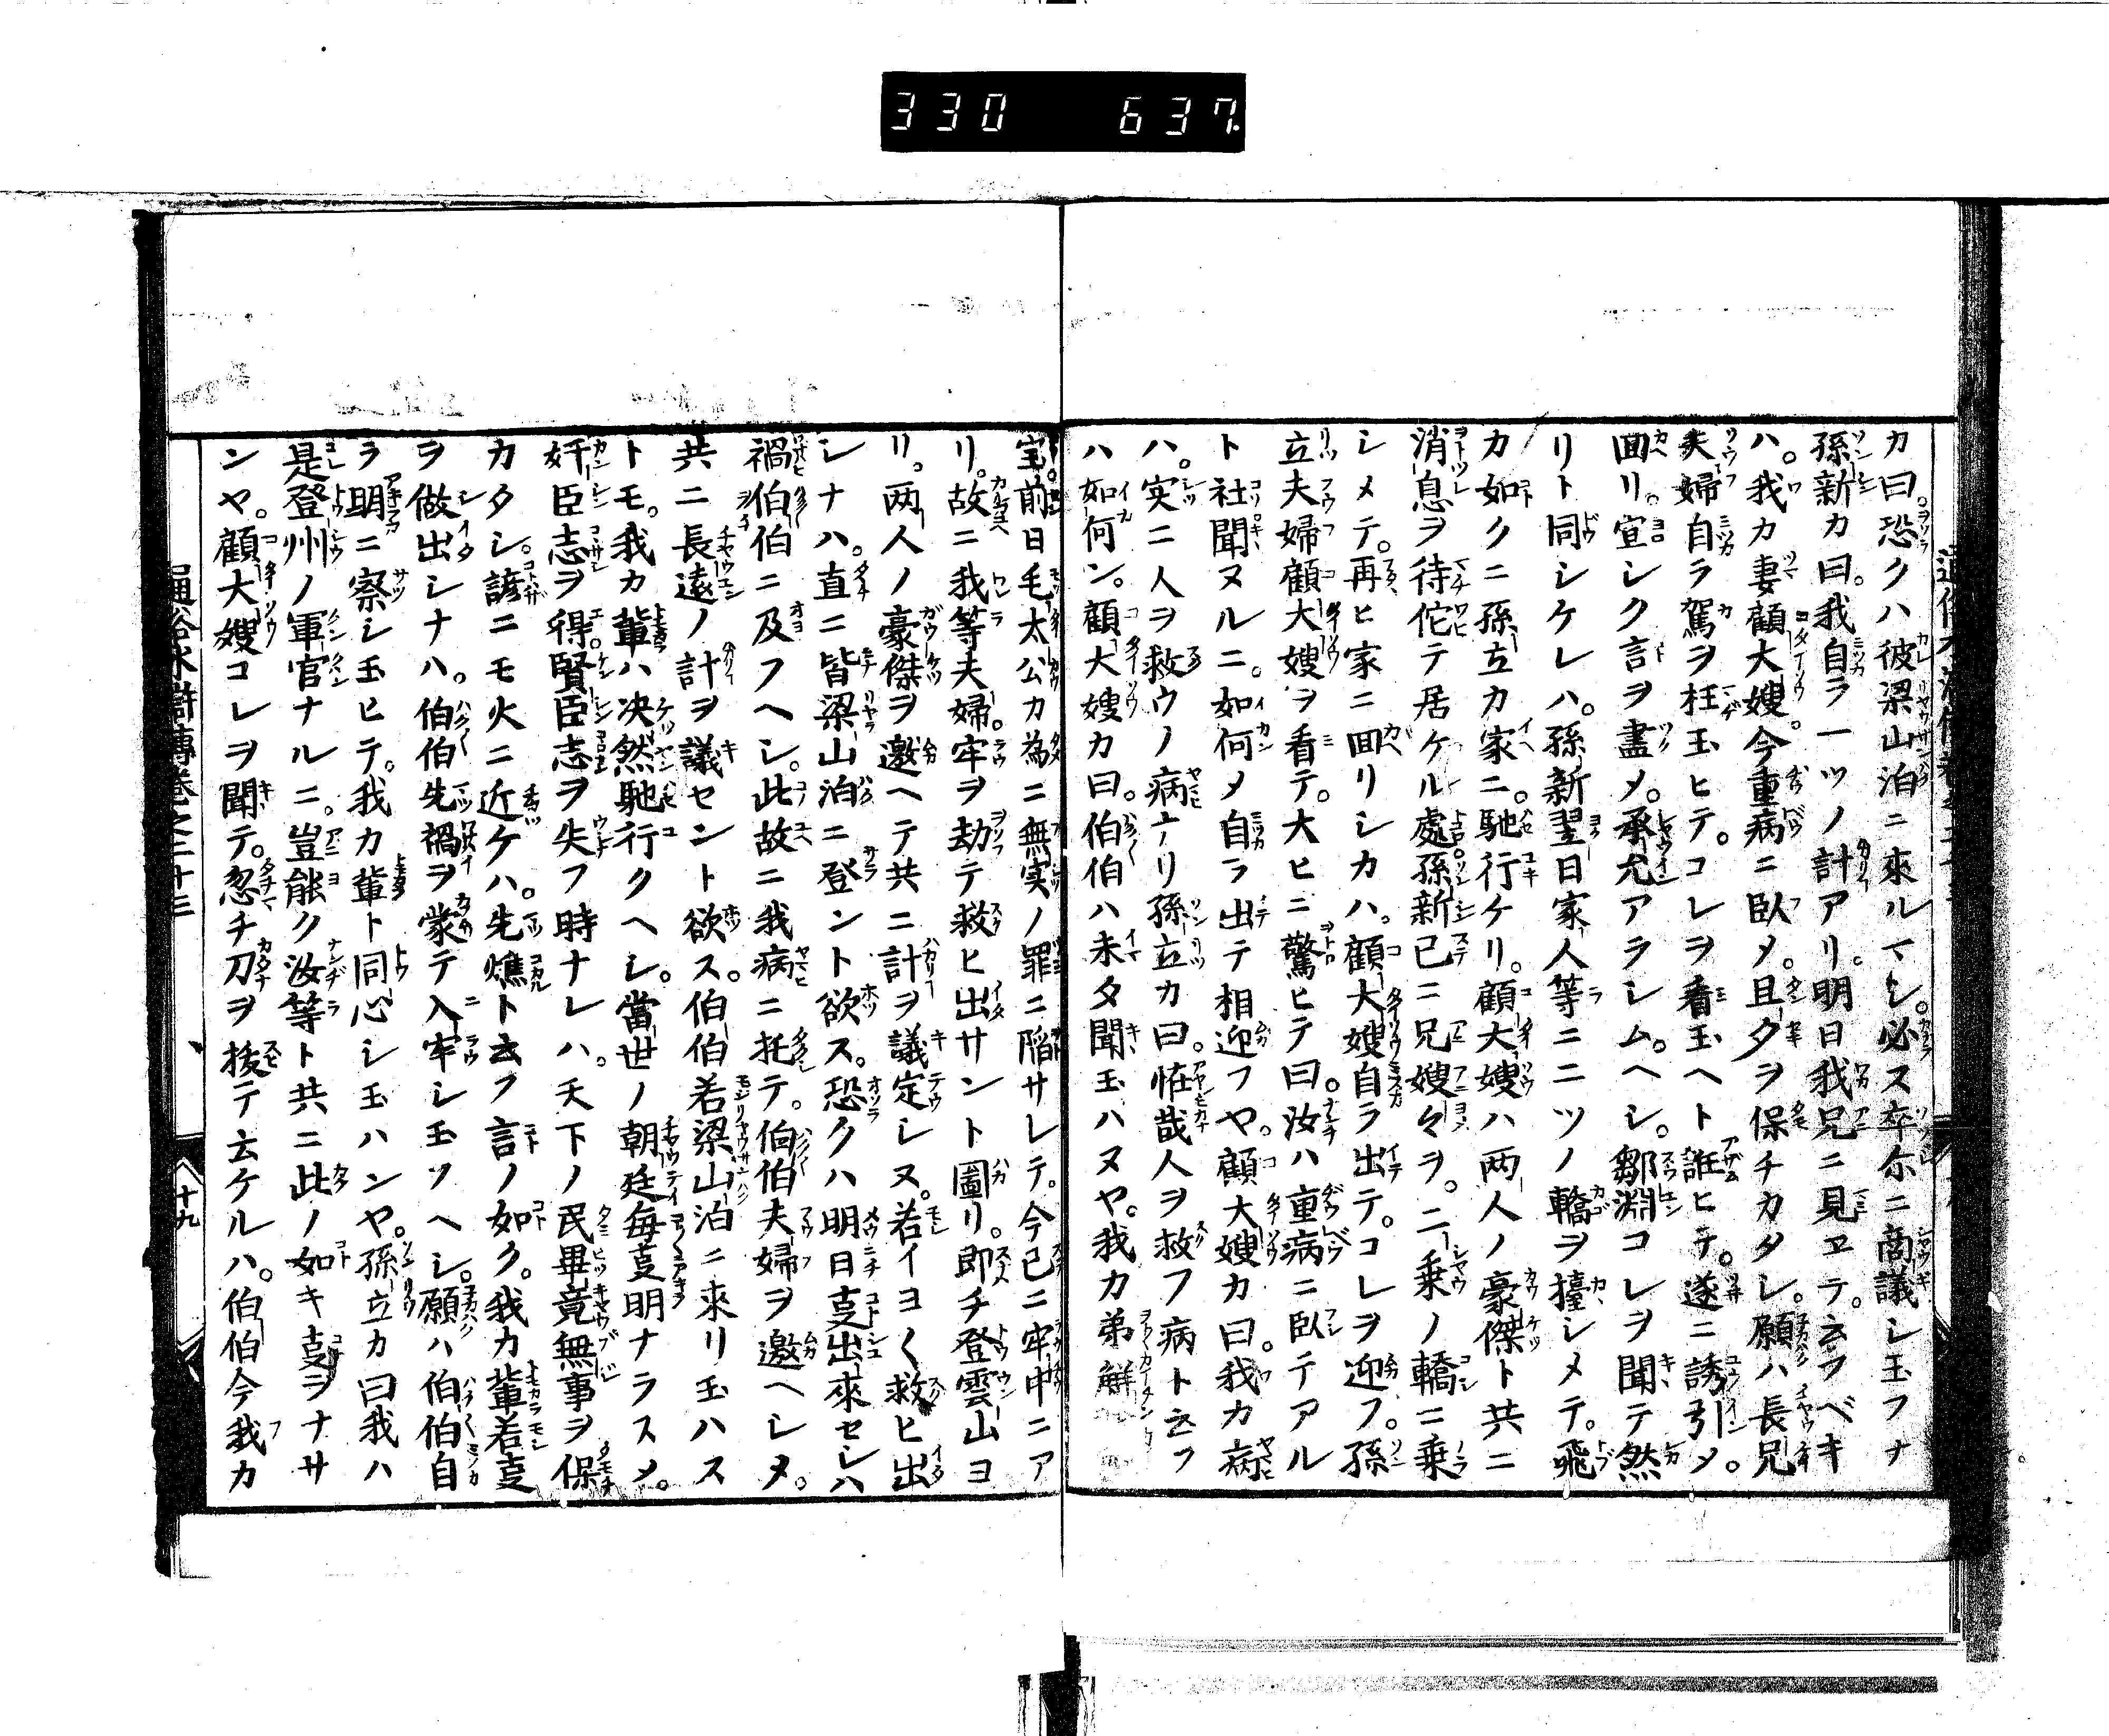 330 637
カ曰。恐クハ彼梁山泊ニ來ルマシ。必ス卒尓ニ商議シ玉フナ
孫新カ曰。我自ラ一ツノ計アリ。明日我兄ニ見ヱテ。云フベキ
ハ。我カ妻顧大嫂。今重病ニ臥メ。且夕ヲ保チカタシ。願ハ長兄
夫婦自ラ駕ヲ枉玉ヒテ。コレヲ看玉ヘト誑ヒテ。遂ニ誘引メ。
囬リ。宣シク言ヲ盡メ。承允アラシム。ヘシ。鄒淵コレヲ聞テ然
リト同シケレハ。孫新翌日家人等ニ二ツノ轎ヲ擡シメテ。飛
カ如クニ孫立カ家ニ。馳行ケリ。顧大嫂ハ两人ノ豪傑ト共ニ
消息ヲ待佗テ居ケル處。孫新已ニ兄嫂々ヲ。二乗ノ轎ニ乗
シメテ。再ヒ家ニ囬リシカハ。顧大嫂自ラ出テ。コレヲ迎フ。孫
立夫婦顧大嫂ヲ看テ。大ヒニ驚ヒテ曰。汝ハ重病ニ臥テアル
ト社聞ヌルニ。如何メ自ラ出テ相迎フヤ。顧大嫂カ曰。我カ病
ハ。実ニ人ヲ救ウノ病ナリ孫立カ曰。恠哉人ヲ救フ病ト云フ
ハ如何ン。顧大嫂カ曰。伯伯ハ未タ聞玉ハヌヤ。我カ弟解
宝。前日毛太公カ為ニ無実ノ罪ニ陥サレテ。今已ニ牢中ニア
リ。故ニ我等夫婦。牢ヲ劫テ救ヒ出サント圖リ。即チ登雲山ヨ
リ。两人ノ豪傑ヲ邀ヘテ共ニ計ヲ議定シヌ。若イヨく救ヒ出
シナハ。直ニ皆梁山泊ニ登ント欲ス。恐クハ明日㕝出來セシハ
禍伯伯ニ及フヘシ。此故ニ我病ニ托テ。伯伯夫婦ヲ邀ヘシメ。
共ニ長遠ノ計ヲ議セント欲ス。伯伯若梁山泊ニ来リ玉ハス
トモ。我カ輩ハ决然馳行クヘシ。當世ノ朝廷毎㕝明ナラスメ。
奸臣志ヲ得賢臣志ヲ失フ時ナレハ。天下ノ民畢竟無事ヲ保
カタシ。諺ニモ火ニ近ケハ。先燋ト云フ言ノ如ク。我カ輩若㕝
ヲ做出シナハ。伯伯先禍ヲ蒙テ入牢シ玉ツヘシ。願ハ伯伯自
ラ明ニ察シ玉ヒテ。我カ輩ト同心シ玉ハンヤ。孫立カ曰我ハ
是登州ノ軍官ナルニ。豈能ク汝等ト共ニ此ノ如キ㕝ヲナサ
ンヤ。顧大嫂コレヲ聞テ。忽チ刀ヲ抜テ云ケルハ。伯伯今我カ
通俗水滸傳卷之二十三
十九